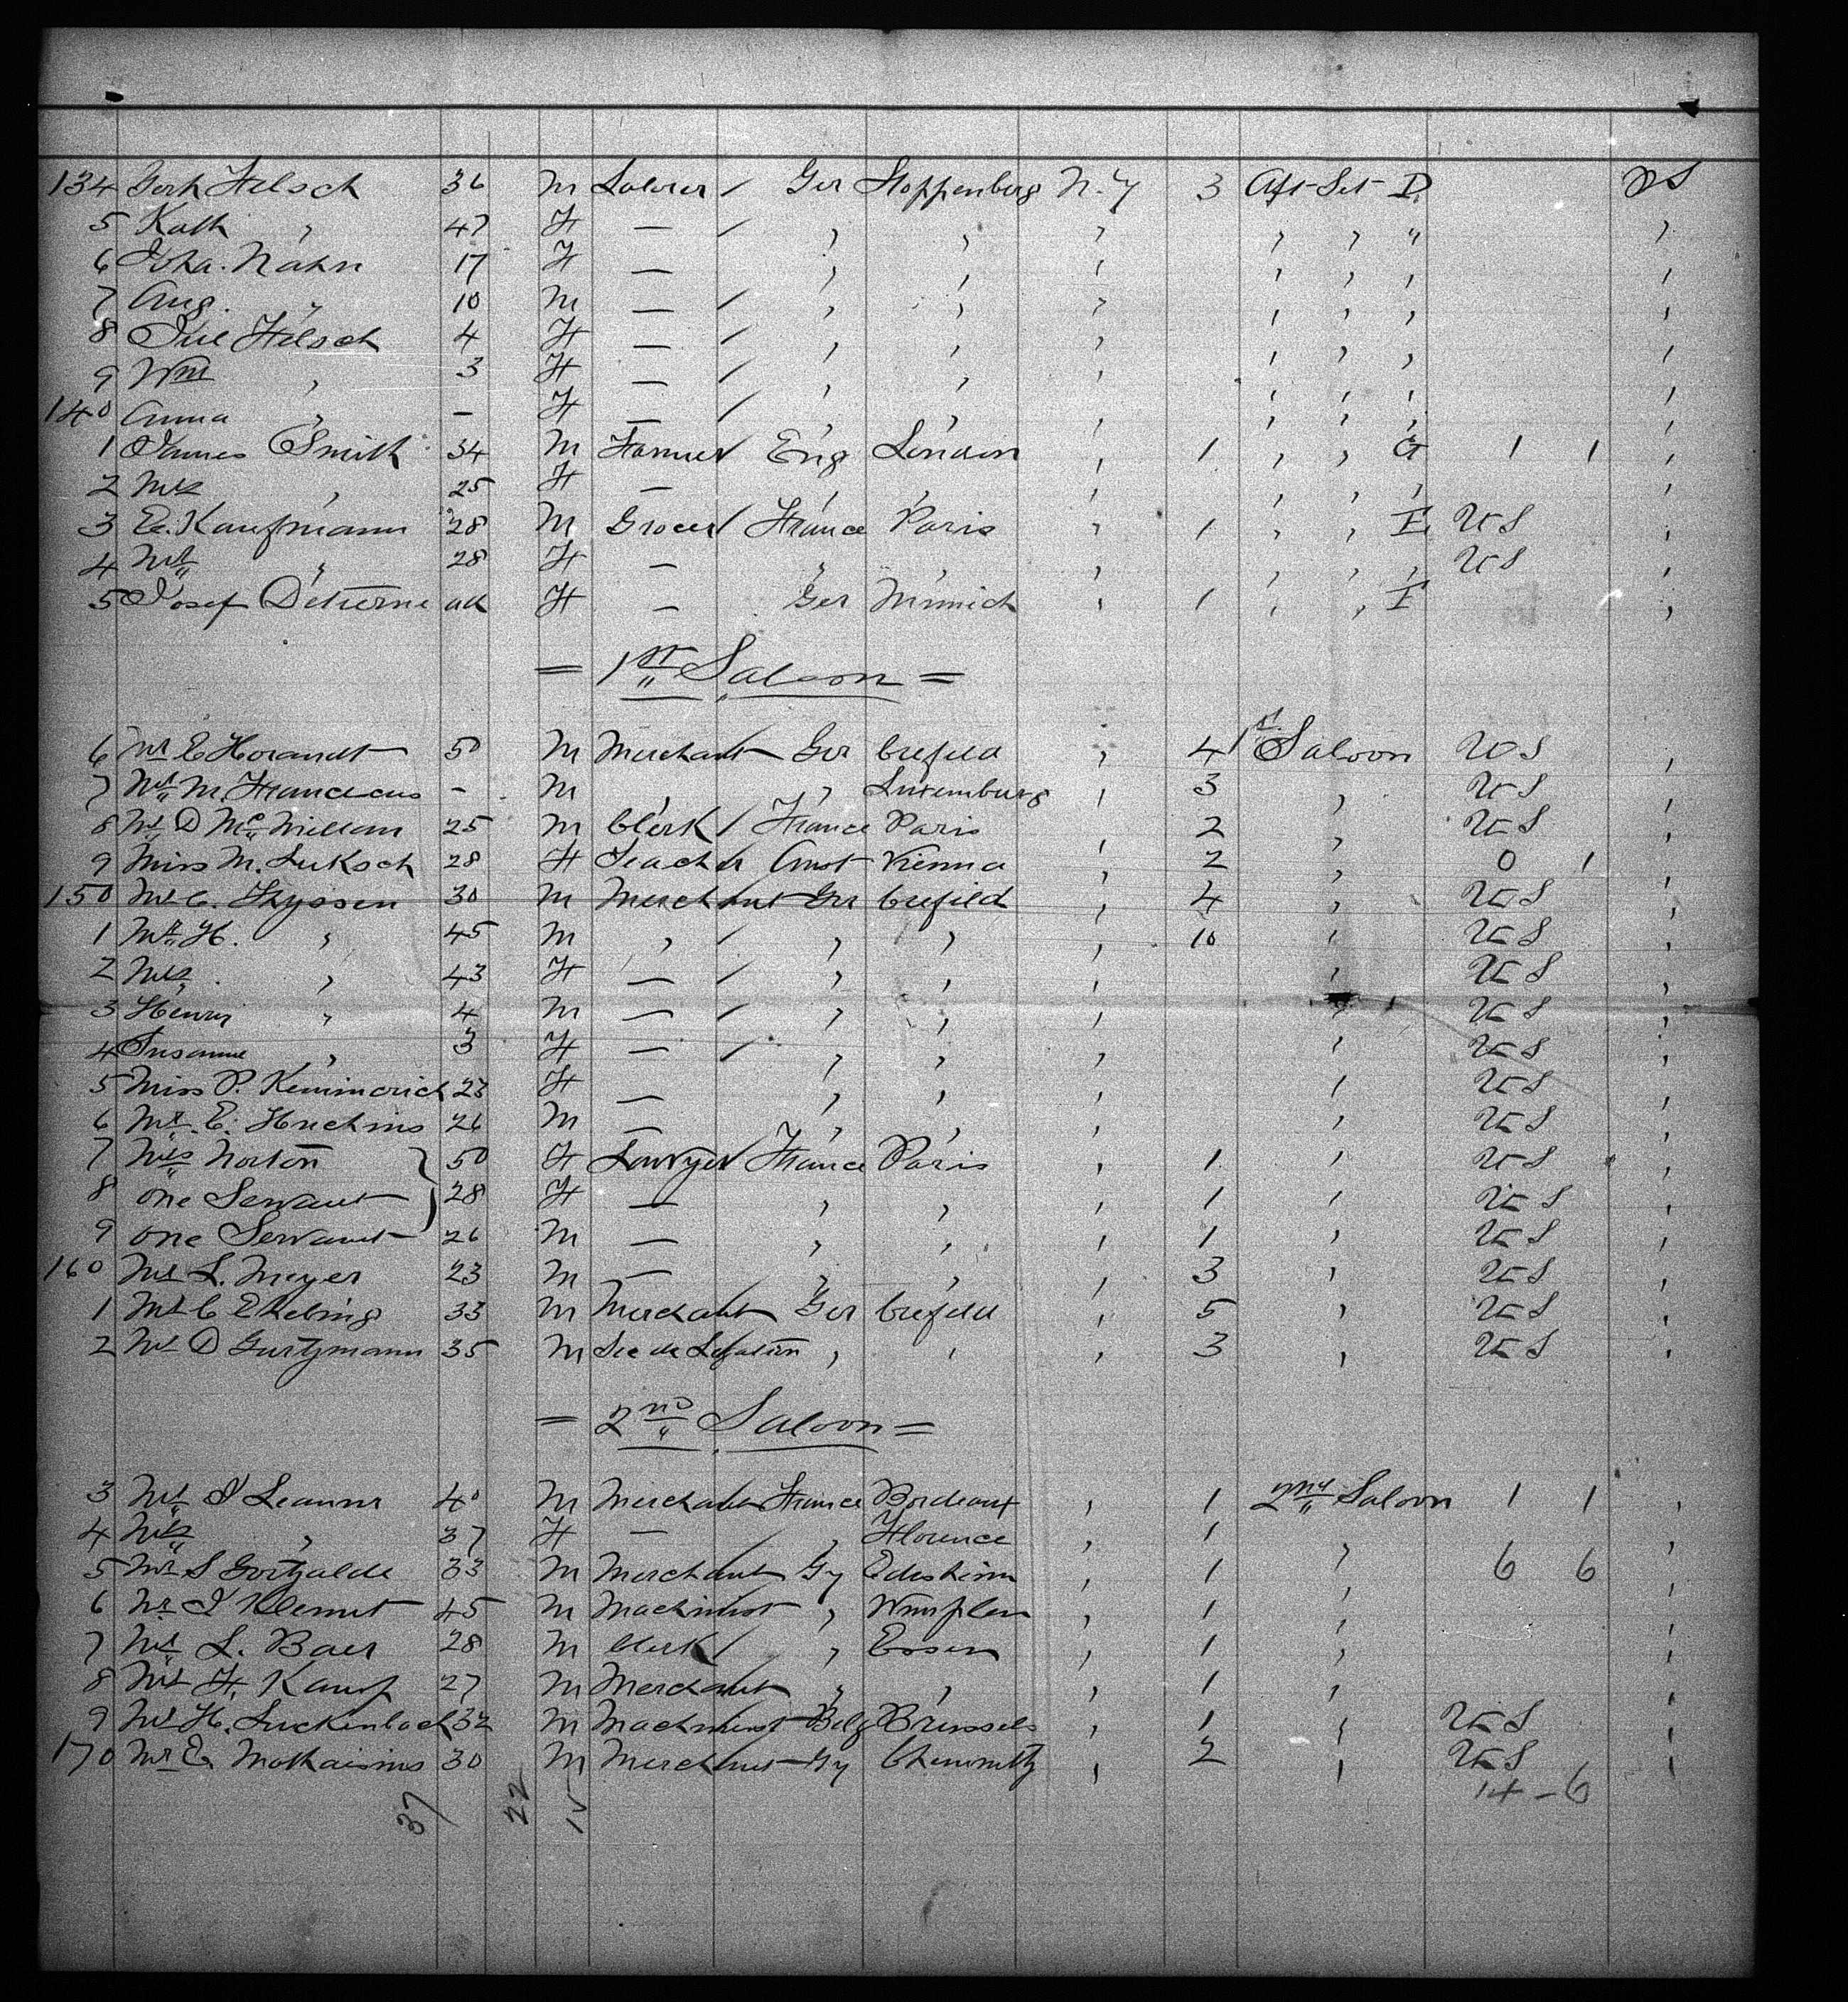 134 Gerh Helsch 36 M Laborer / Ger Stoppenberg N.Y 3 Aft Set D. US
5 Kath " 47 F — / " " " " " " "
6 Joha. Nahn 17 F — " " " " " " "
7 Aug. " 10 M — / " " " " " " "
8 Jul Helsch 4 F — / " " " " " " "
9 Wm " 3 F — / " " " " " " "
140 Anna " - F — / " " " " " " "
1 James Smith 34 M Farmer / Eng London " 1 " " G 1 1 "
2 Mrs " 25 F — " " " " " " "
3 E. Kaufmann 28 M Grocer / France Paris " 1 " " E US "
4 Mrs " 28 F — " " " " " " US "
5 Josef 24 F — Ger Munich " 1 " " E "
= 1st Saloon =
6 Mr E Horandt 50 M Merchant Ger Crefeld " 4 1st Saloon US "
7 Mr M. Franciscus - M " " Luxemburg " 3 " US "
8 Mr D McMillan 25 M Clerk / France Paris " 2 " US "
9 Miss M. Luksch 28 F Teacher Aust Vienna " 2 " 0 1 "
150 Mr C. Thyssen 30 M Merchant Ger Crefeld " 4 " US "
1 Mr H. " 45 M " / " " " 10 " US "
2 Mrs " 43 F — / " " " " US "
3 Henry " 4 M — / " " " " US "
4 Susanne " 3 F — / " " " " US "
5 Miss P. Kemmerich 23 F — " " " " US "
6 Mr. E. 26 M — " " " " US "
7 Mrs Norton 50 F Lawyer / France Paris " 1 " US "
8 one Servant 28 F — " " " 1 " US "
9 one Servant 26 M — " " " 1 " US "
160 Mr L. Meyer 23 M — " " " 3 " US "
1 Mr C Ekebing 33 M Merchant Ger Crefeld " 5 " US "
2 Mr D Gurtzmann 35 M Sec de Legation " " " 3 " US "
= 2nd Saloon =
3 Mr J 40 M Merchant France Bordeaux " 1 2nd Saloon 1 1 "
4 Mrs " 37 F — / " Florence " 1 " "
5 Mr S 33 M Merchant Gy Edesheim " 1 " 6 6 "
6 Mr J Klemet 45 M Machinist " Wimpfen " 1 " "
7 Mr L. Baer 28 M Clerk / " Essen " 1 " "
8 Mr H. Kauf 27 M Merchant " " " 1 " "
9 Mr H. Luckenbach 32 M Machinist Belg Brussels " 1 " US "
170 Mr E. 30 M Merchant Gy Chemnitz " 2 " US "
14 - 6
37 22 15